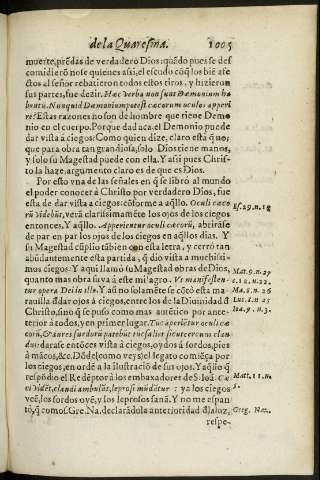 de la Quaresma. 1005
muerte, prēdas de verdadero Dios: quādo pues se des
comidierō nose quienes assi, el escudo cō q̄ los bie afe
ctos al señor rebatieron todos estos tiros, y hizieron
sus partes, fue dezir. Hæc verba non sunt Dæmonium ha
bentis. Nunquid Dæmonium potest cæcorum oculos aperi
re? Estas razones no son de hombre que tiene Demo
nio en el cuerpo. Porque dad aca, el Demonio puede
dar vista a ciegos: Como quien dize, claro està q̄ no;
que para obra tan grandiosa, solo Dios tiene manos,
y solo su Magestad puede con ella. Y assi pues Chris-
to la haze, argumento claro es de que es Dios.
Por esto vna de las señales en q̄ se librò al mundo
el poder conocer à Christo por verdadero Dios, fue
esta de dar vista a ciegos: cōforme a aq̄llo. Oculi cæco
rū videbūt, verā clarissimamēte los ojos de los ciegos
entonces. Y aq̄llo. Aperientur oculi cæcorū, abrirāse
de par en par los ojos de los ciegos en aq̄llos dias. Y
su Magestad cūplio tābien con esta letra, y cerrò tan
abūdantemente esta partida, q̄ dio vista a muchissi-
mos ciegos: Y aqui llamò su Magestad obras de Dios,
quanto mas obra suya à este milagro. Vt manifesten-
tur opera Dei in illo. Y assi no solamēte se cōtò esta ma-
rauilla d̄ dar ojos à ciegos, entre los de la Diuinidad d̄
Christo, sino q̄ se puso como mas autētico por ante-
terior à todos, y en primer lugar. Tūc aperiētur oculi cæ
corū, & aures surdorū patebūt: tūc saliet sicut ceruus clau
dus: darase entōces vista à ciegos, oydos à sordos, pies
à mācos, &c. Dōde (como veys) el legato comiēça por
los ciegos, en ordē a la ilustraciō de sus ojos. Y aq̄llo q̄
respōdio el Redēptor à los embaxadores de S. Ioā. Cæ
ci vidēt, claudi ambulāt, leprosi mūdātur: ya los ciegos
veē, los sordos oyē, y los leprosos sanā. Y no me espan
to, q̄ como S. Gre. Na. declarādo la anterioridad d̄ la luz,
respe-
Esf. 29. n. 18
Mat. 9. n. 27
c. 12. n. 22.
Ma. 8. n. 26
Luc. 8. n. 25
Ioā. 9. n. 3.
Matt. 11. n.
5.
Greg. Naz.